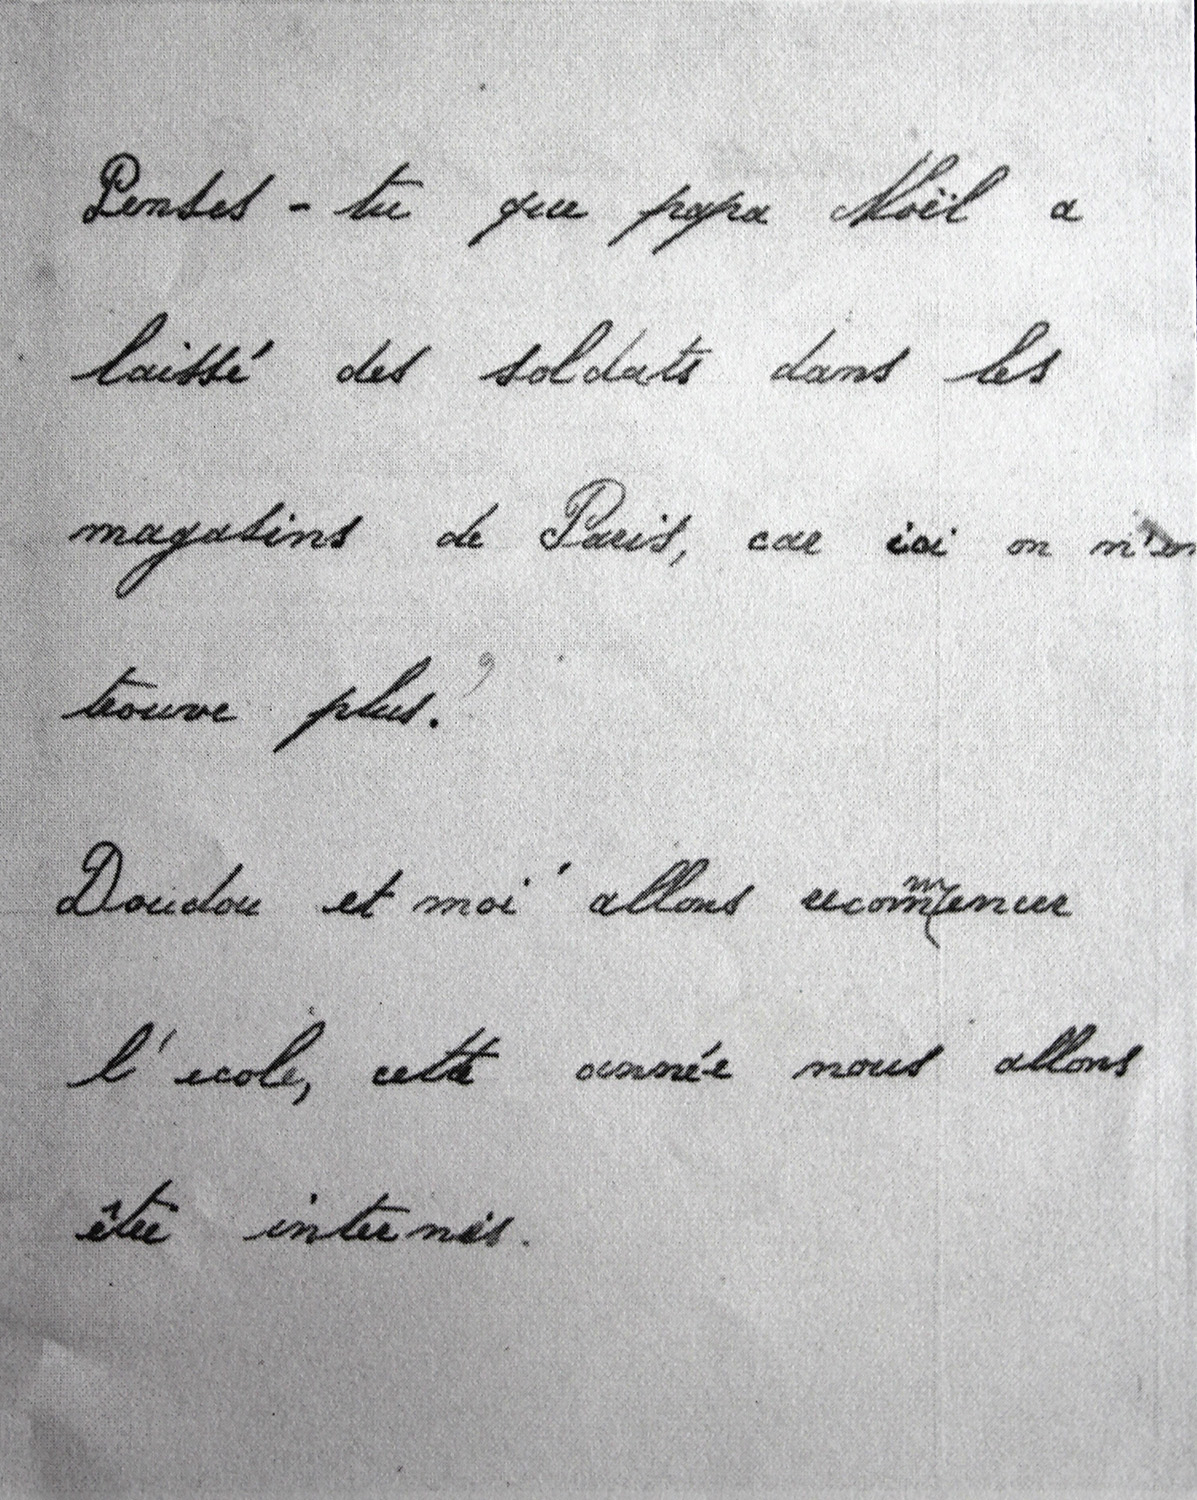 Penses-tu que papa Noël a
laissé des soldats dans les
magasins de Paris, car ici on n'en
trouve plus.
Doudou et moi allons recommencer
l'ecole, cette année nous allons
être internés.